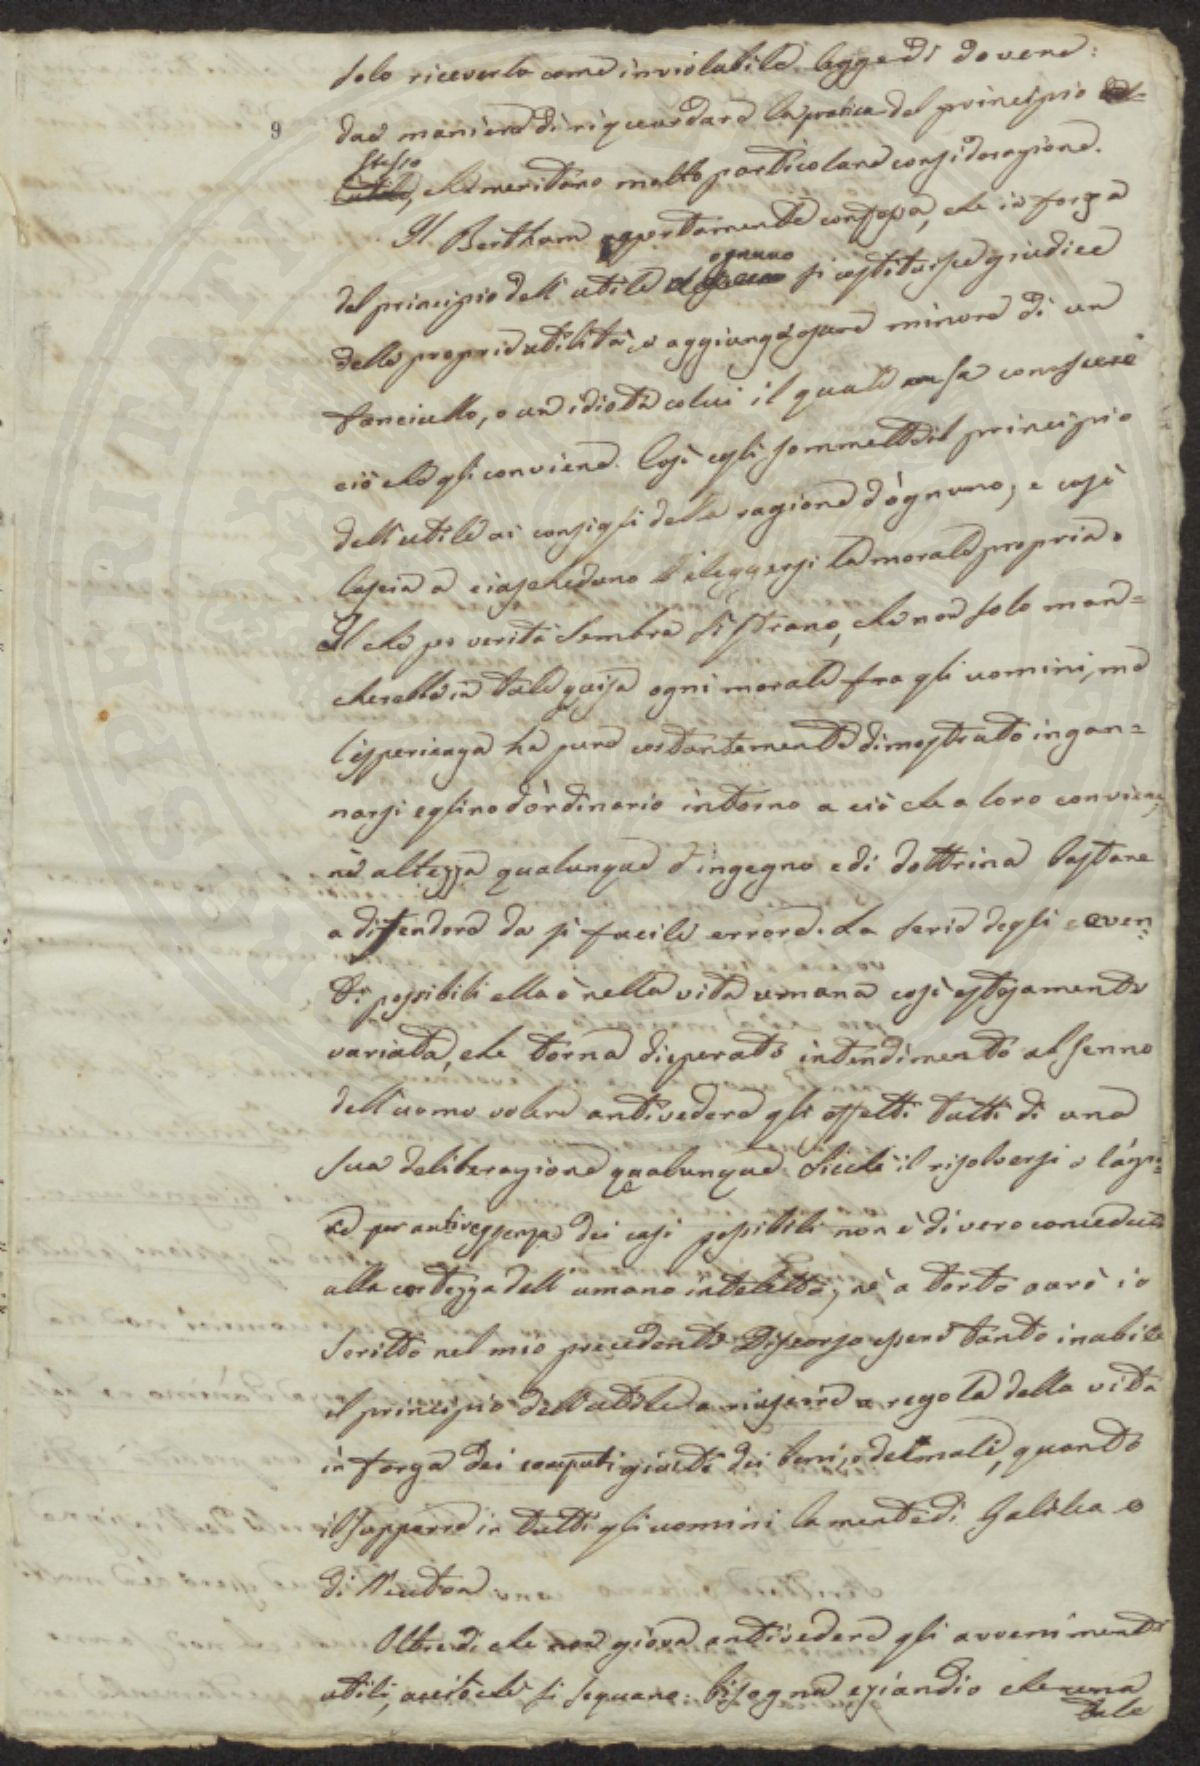 solo riceverla come inviolabile legge di dovere:
9
due maniere di riguardare la pratica del principio
stesso
l'utile, che meritano molto particolare considerazione.
Il Bentham apertamente confessa, che in forza
ognuno
del principio dell'utile si costituisce giudice
della propria utilità, e aggiunge essere minore di un
fanciullo, o un idiota colui il quale non sa conoscere
ciò che gli conviene. Così egli sommette il principio
dell'utile ai consigli della ragione d'ognuno, e così
lascia a ciascheduno di eleggersi la morale propria.
Il che per verità sembra sì strano, che non solo man=
cherebbe in tale guisa ogni morale fra gli uomini, ma
l'esperienza ha pure costantemente dimostrato ingan=
narsi eglino d'ordinario intorno a ciò che a loro conviene,
nè altezza qualunque d'ingegno e di dottrina bastare
a difendere da sì facile errore. La serie degli even=
ti possibili ella è nella vita umana così estesamente
variata, che torna disperato intendimento al senno
dell'uomo volere antivedere gli effetti tutti di una
sua deliberazione qualunque. Sicchè il risolversi o l'agi=
re per antiveggenza dei casi possibili non è di vero conceduto
alla cortezza dell'umano intelletto; nè a torto avrò io
scritto nel mio precedente Discorso essere tanto inabile
il principio dell'utile a riuscire a regola della vita
in forza dei computi giusti dei beni, e dei mali, quanto
il supporre in tutti gli uomini la mente di Galileo o
di Newton.
Oltre di che non giova antivedere gli avvenimenti
utili, acciochè si seguano: bisogna eziandio che una
tale